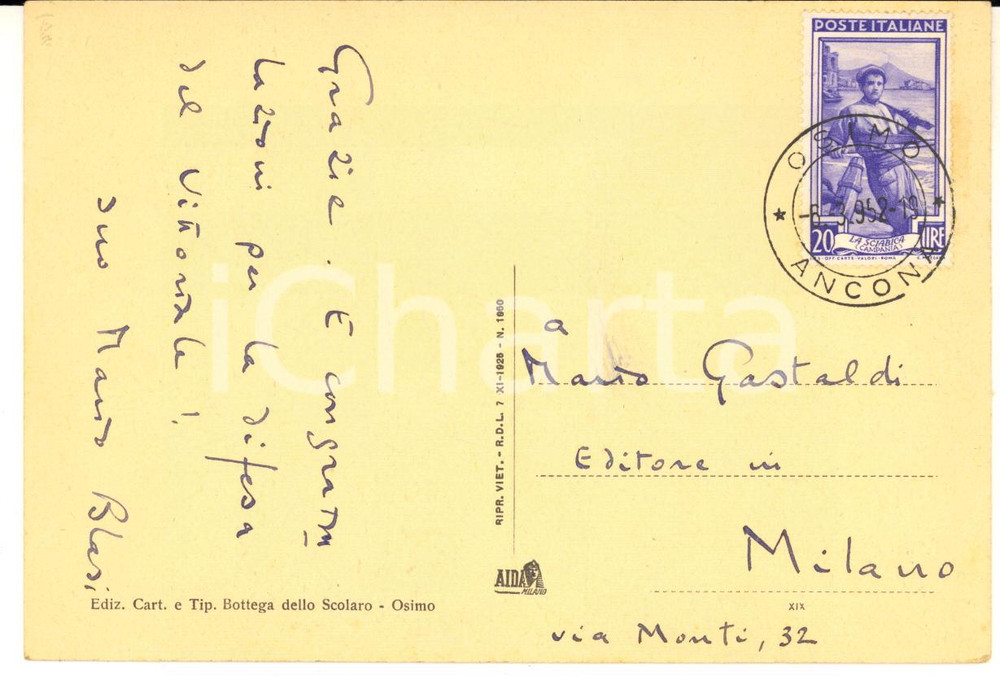 Grazie. E congratu
lazioni per la difesa
del Vittoriale!
suo Mario Blasi
Ediz. Cart. e Tip. Bottega dello Scolaro - Osimo
RIPR. VIET. - R.D.L. 7 XI-1925 - N. 1950
AIDA
MILANO
POSTE ITALIANE
20 LIRE
LA SCIABICA
(CAMPANIA)
OSIMO
ANCONA
a
Mario Gastaldi
Editore in
Milano
XIX
via Monti, 32
iCharta